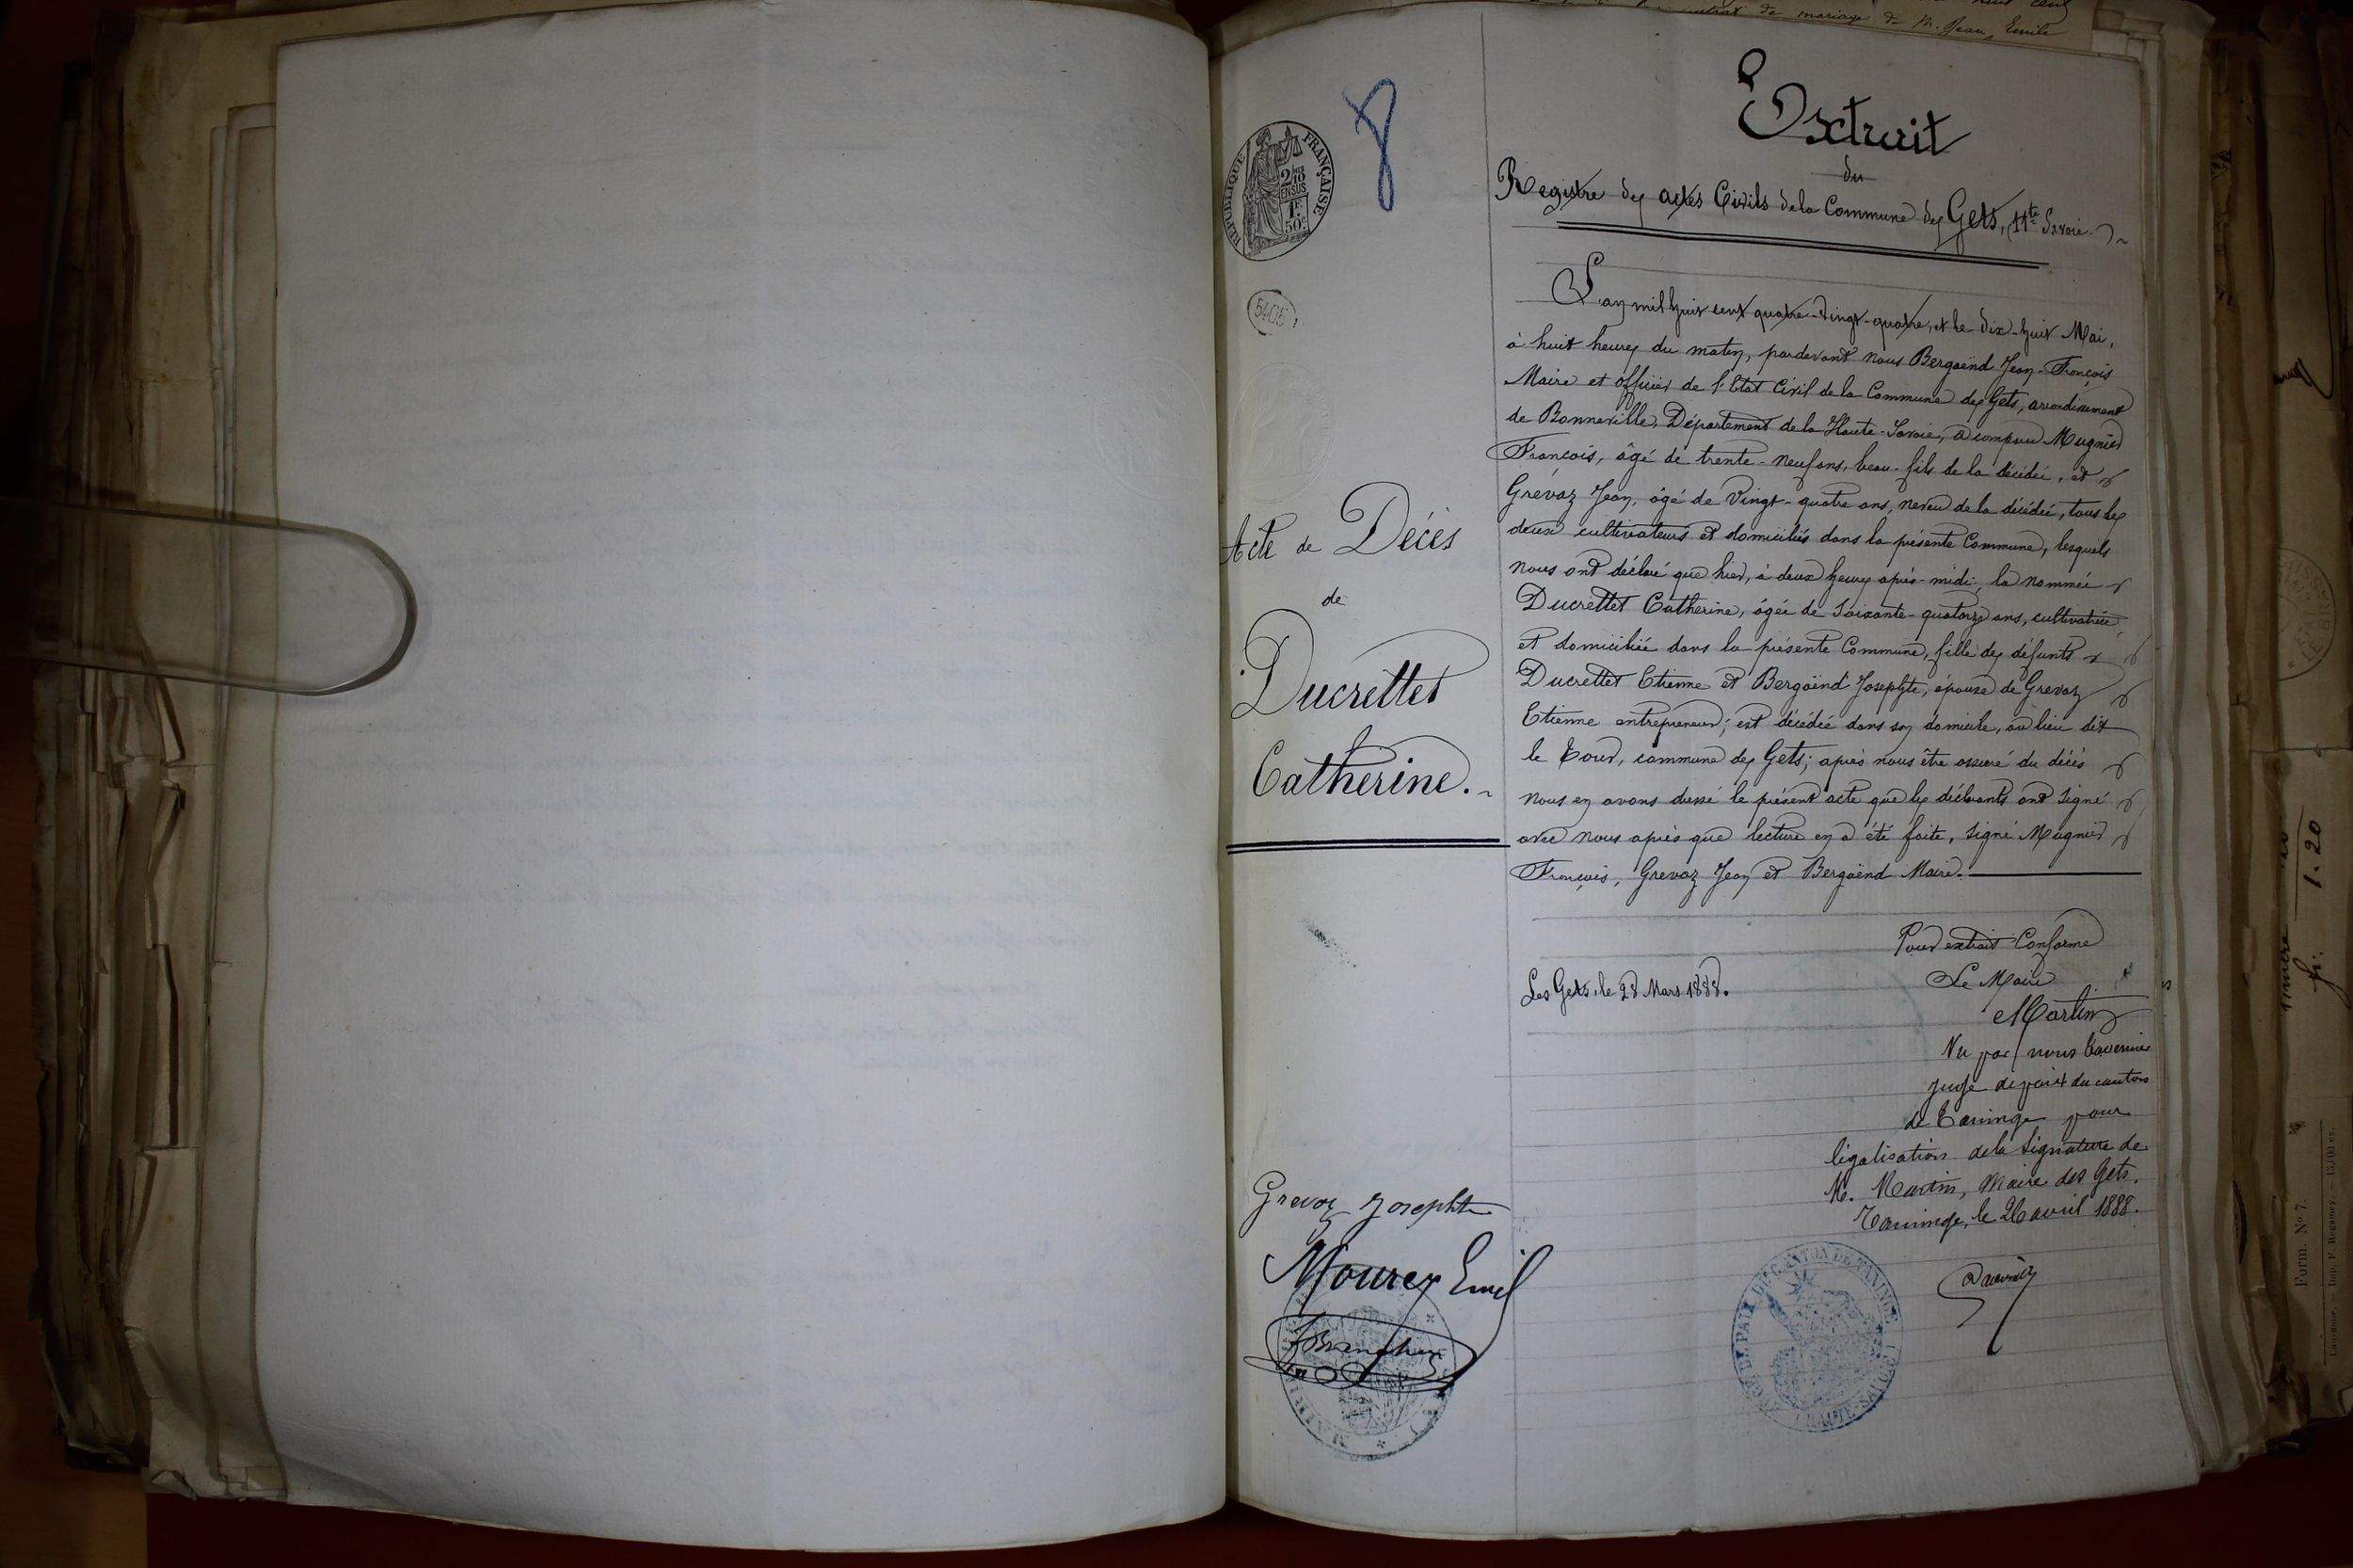 contrat de mariage de M. Jean Emile
8
RÉPUBLIQUE FRANÇAISE
2/10
EN SUS
1F.
50C.
Extrait
du
Registre des actes Civils de la Commune des Gets, (Hte Savoie.)
L'an mil huit cent quatre-vingt-quatre, et le dix-huit Mai,
à huit heures du matin, pardevant nous Bergoënd Jean-François
Maire et officier de l'Etat Civil de la Commune des Gets, arrondissement
de Bonneville, Département de la Haute-Savoie, a comparu Mugnier
François, âgé de trente-neuf ans, beau-fils de la décédée, et
Grévaz Jean, âgé de vingt-quatre ans, neveu de la décédée, tous les
deux cultivateurs et domiciliés dans la présente Commune, lesquels
nous ont déclaré que hier, à deux heures après-midi, la nommée
Ducrettet Catherine, âgée de soixante-quatorze ans, cultivatrice,
et domiciliée dans la présente Commune, fille des défunts
Ducrettet Etienne et Bergoënd Josephte, épouse de Grevaz
Etienne entrepreneur; est décédée dans son domicile, au lieu dit
le Tour, commune des Gets; après nous être assuré du décès
nous en avons dressé le présent acte que les déclarants ont signé
avec nous après que lecture en a été faite, signé Mugnier
François, Grevaz Jean et Bergoënd Maire.
Acte de Décès
de
Ducrettet
Catherine.
Pour extrait Conforme
Les Gets, le 28 Mars 1888.
Le Maire
Martin
Vu par nous Tavernier
juge de paix du canton
de Taninge pour
légalisation de la signature de
M. Martin, Maire des Gets.
Taninge, le 26 avril 1888.
Tavernier
Grevaz Josephte
Mourer Emil
MAIRIE
JUSTICE DE PAIX DU CANTON DE TANINGE
(HAUTE-SAVOIE)
fr. 1.20
Form. No 7.